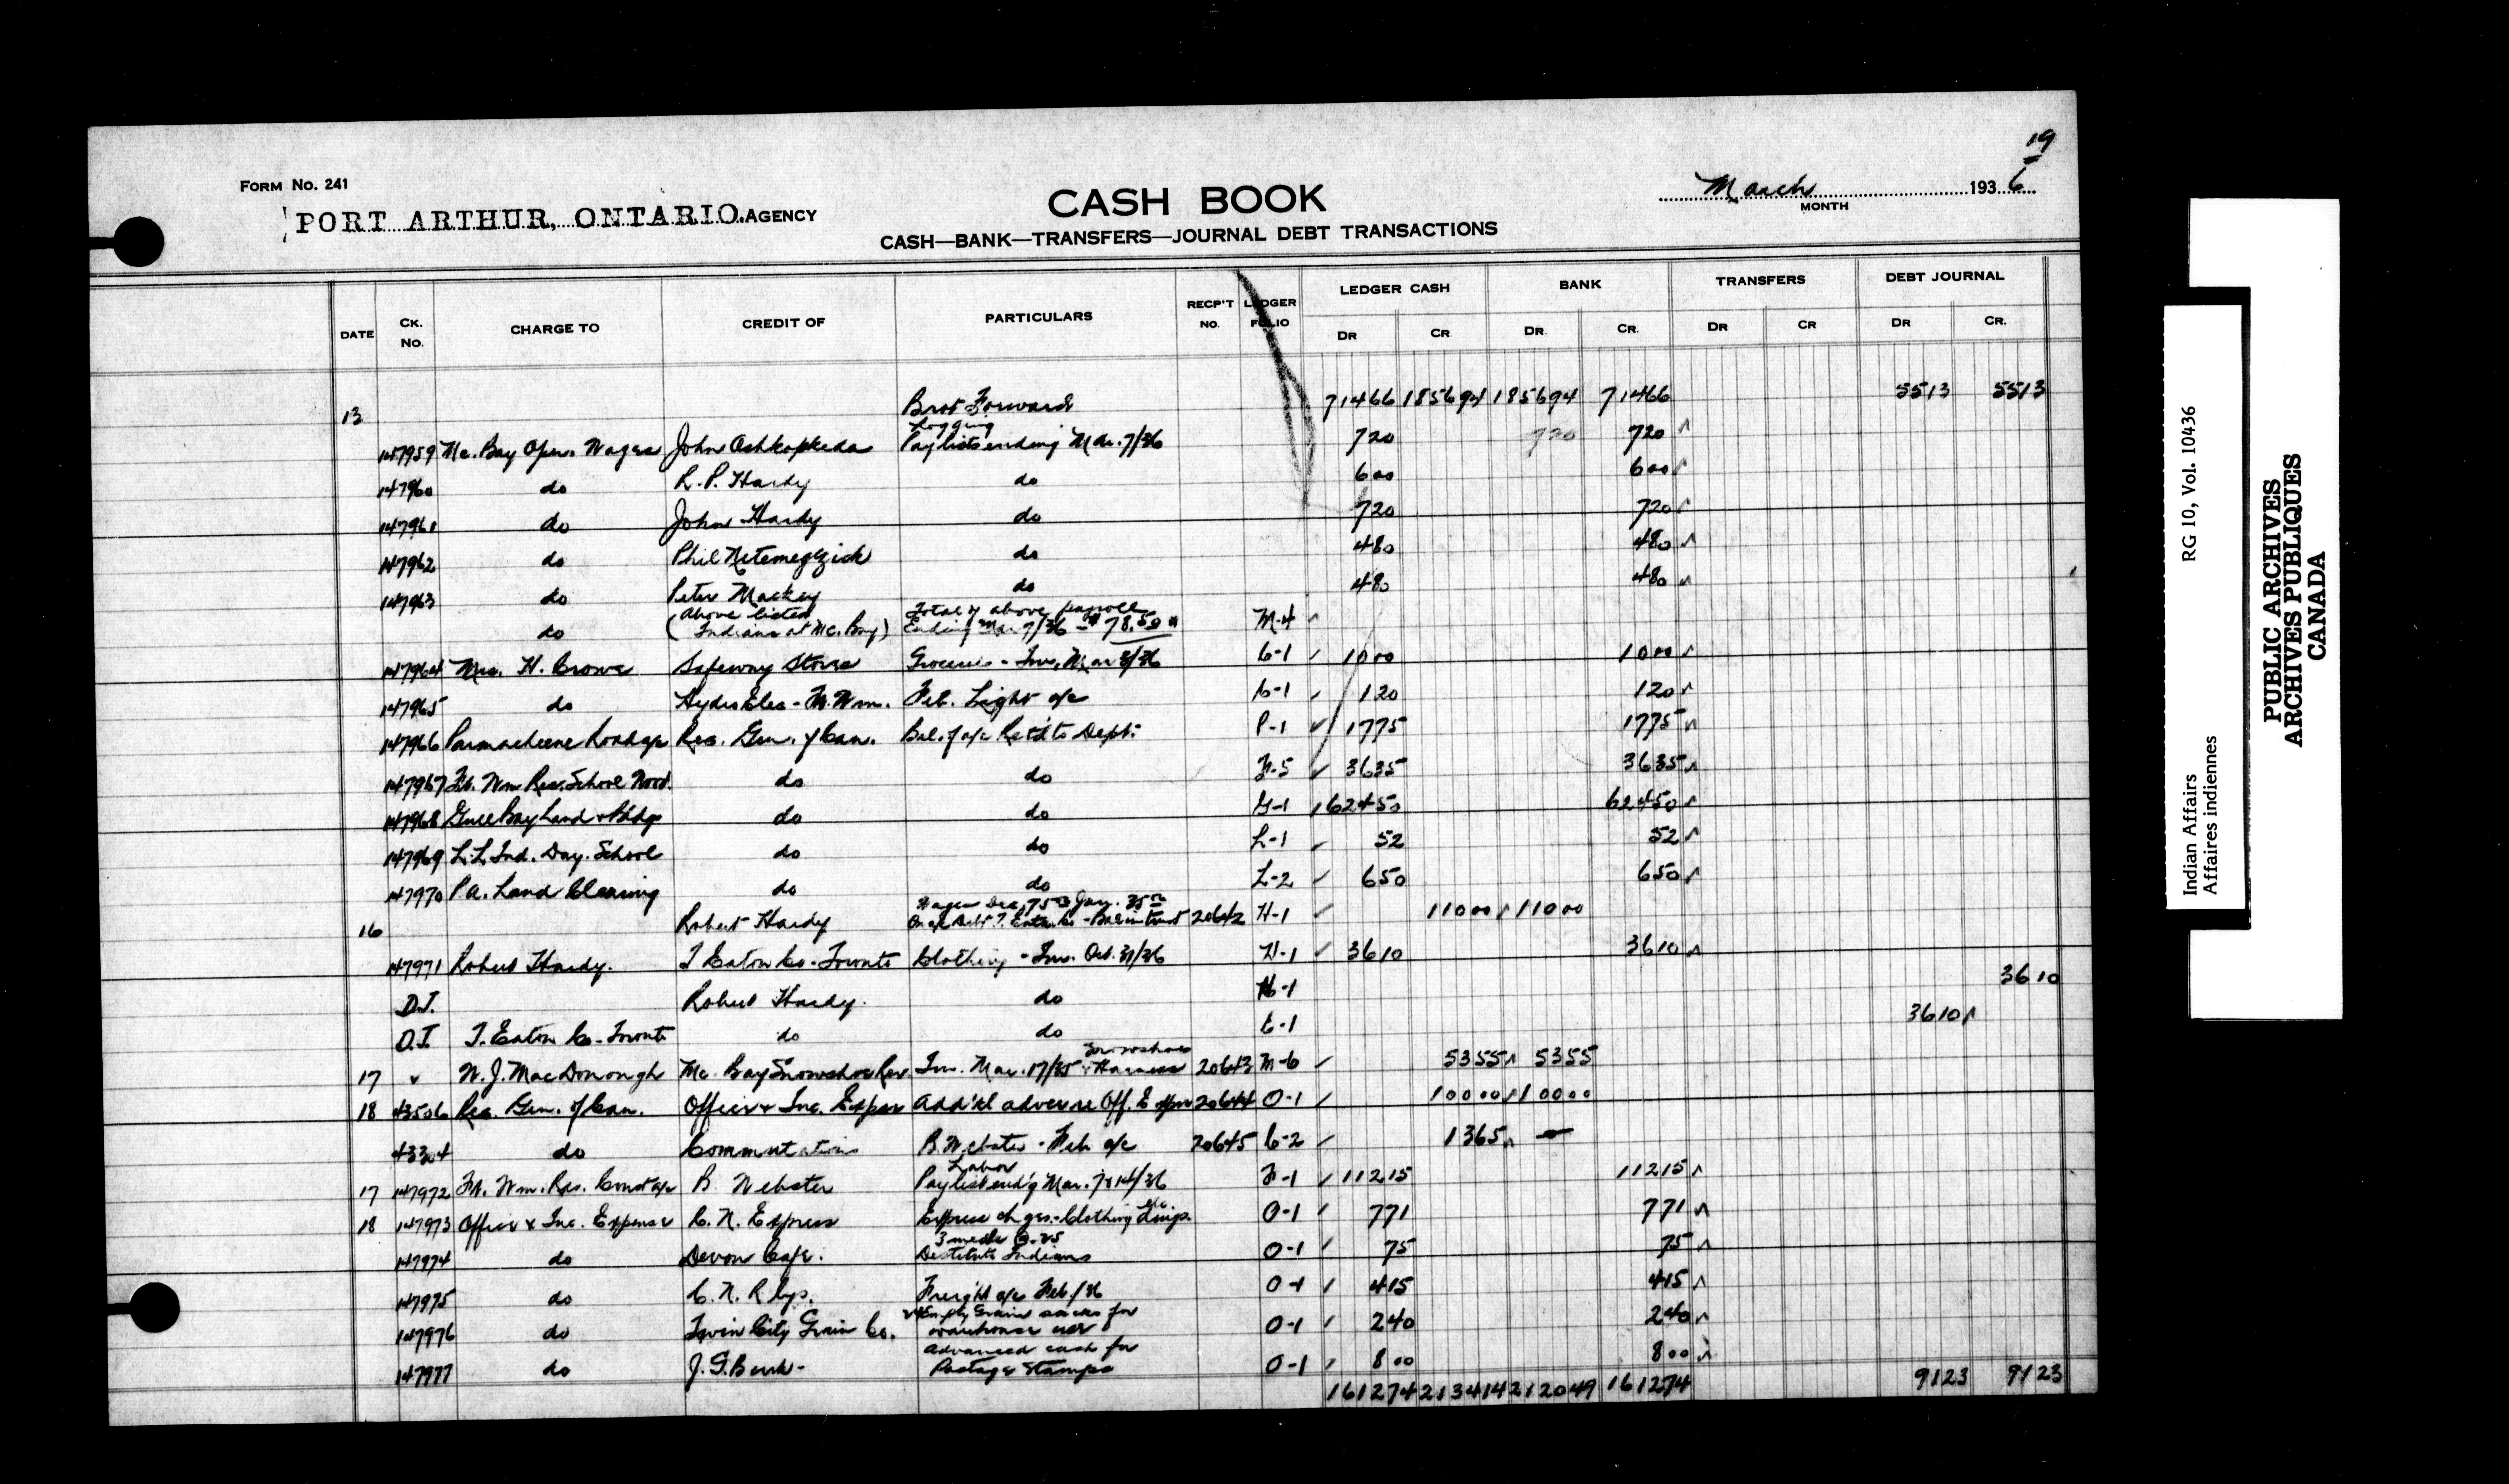 19
FORM No. 241
PORT ARTHUR, ONTARIO. AGENCY
CASH BOOK
CASH—BANK—TRANSFERS—JOURNAL DEBT TRANSACTIONS
March 1936
MONTH
DATE CK. No. CHARGE TO CREDIT OF PARTICULARS RECP'T No. LEDGER FOLIO LEDGER CASH BANK TRANSFERS DEBT JOURNAL
DR CR DR. CR. DR CR DR CR.
13 Brot Forward 71466 185694 185694 71466 5513 5513
Logging
147959 Mc. Bay Oper. Wages John Oshkopkeda Paylist ending Mar. 7/36 720 720 720
147960 do R. P. Hardy do 600 600
147961 do John Hardy do 720 720
147962 do Phil do 480 480
147963 do Peter Mackey do 480 480
above listed Total of above payroll
do (Indians at Mc. Bay) Ending Mar 7/36 - $78.50 M-4
147964 Mrs. H. Crowe Safeway Stores Groceries - Inv. Mar 3/36 C-1 1000 1000
147965 do Hydro Elec - Ft. Wm. Feb. Light a/c C-1 120 120
147966 Parmacheene Road a/c Rec. Gen. of Can. Bal. of a/c Ret'd to Dept. P-1 1775 1775
147967 Ft. Wm Res. School Wood. do do F-5 3635 3635
147968 Gull Bay Land & Bldgs do do G-1 62450 62450
147969 L.L. Ind. Day. School do do L-1 52 52
147970 P.A. Land Clearing do do L-2 650 650
Wages Dec. 75 Jan. 35
16 Robert Hardy On a/c Debt T. Eaton Co - Bal in trust 20642 H-1 11000 11000
147971 Robert Hardy. T Eaton Co - Toronto Clothing - Inv. Oct. 31/36 H-1 3610 3610
D.J. Robert Hardy. do H-1 3610
D.J. T. Eaton Co - Toronto do do E-1 3610
Snowshoes
17 W. J. MacDonough Mc. Bay Snowshoe Rev. Inv. Mar. 17/35 & Harness 20643 M-6 5355 5355
18 43506 Rec. Gen. of Can. Office & Inc. Expen Add'tl advance Off. Expen 20644 O-1 10000 10000
43304 do Commutations B. Webster - Feb a/c 20645 C-2 1365 —
Labor
17 147972 Ft. Wm. Res. Const a/c B. Webster Paylist end'g Mar. 7 & 14/36 F-1 11215 11215
18 147973 Office & Inc. Expense C. N. Express Express chges. - Clothing etc O-1 771 771
3 meals @ .25
147974 do Devon Cafe. Destitute Indians O-1 75 75
147975 do C. N. Rlys. Freight a/c Feb./36 O-1 415 415
Empty Grain sacks for
147976 do Twin City Grain Co. warehouse use O-1 240 240
advanced cash for
147977 do J. G. Burk - Postage Stamps O-1 800 800
161274 213414 212049 161274 9123 9123
Indian Affairs RG 10, Vol. 10436
Affaires indiennes
PUBLIC ARCHIVES
ARCHIVES PUBLIQUES
CANADA